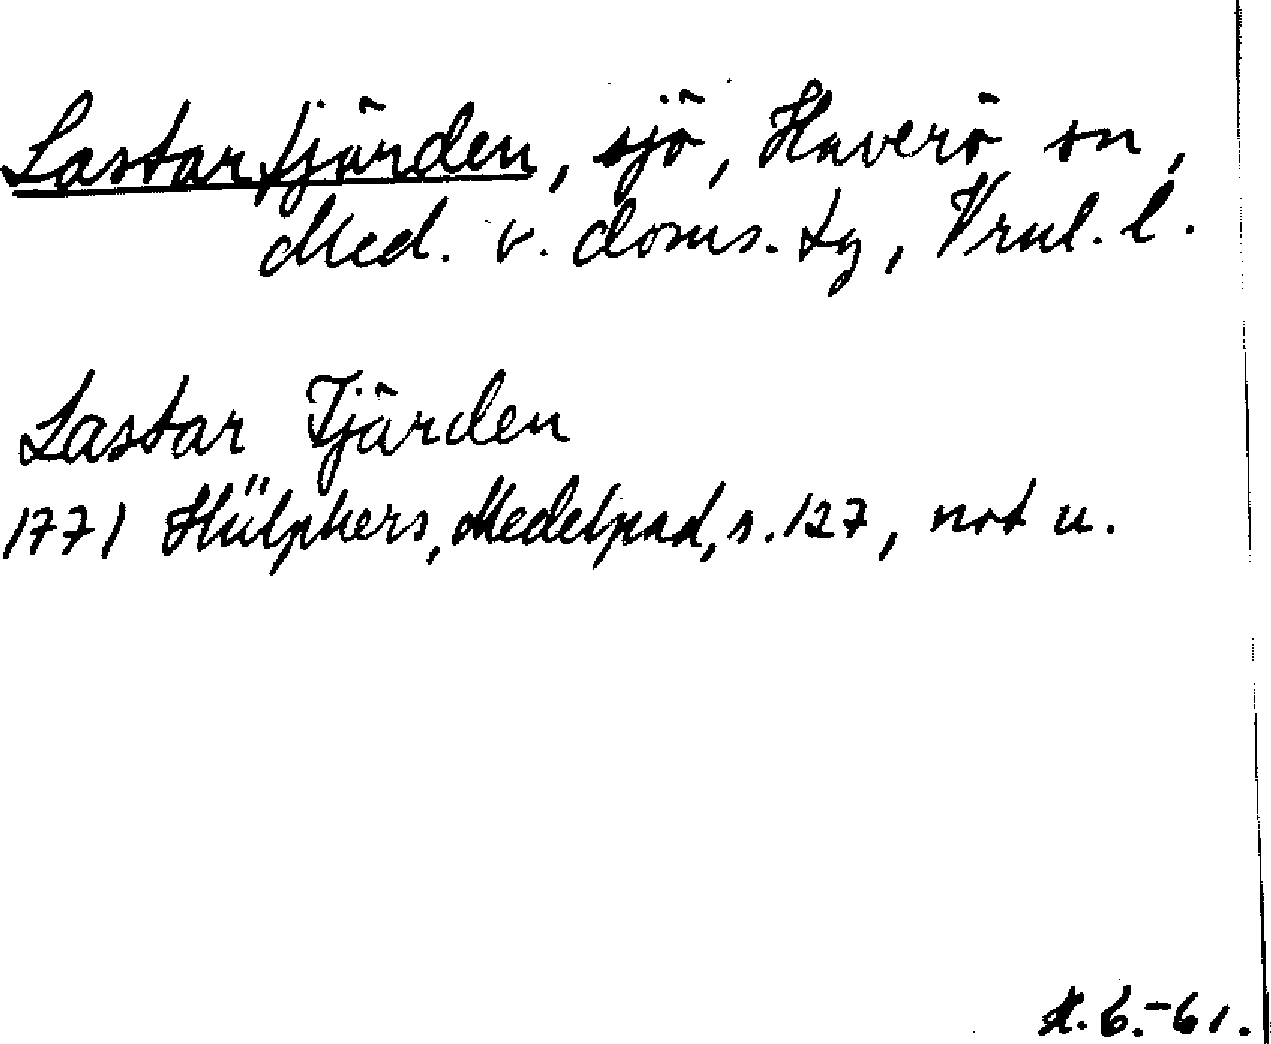 Lastarfjärden, sjö, Haverö sn,
Med. v. doms. tg, Vrnl. l.
Lastar Fjärden
1771 Hülphers, Medelpad, s. 127, not u.
.6.-61.